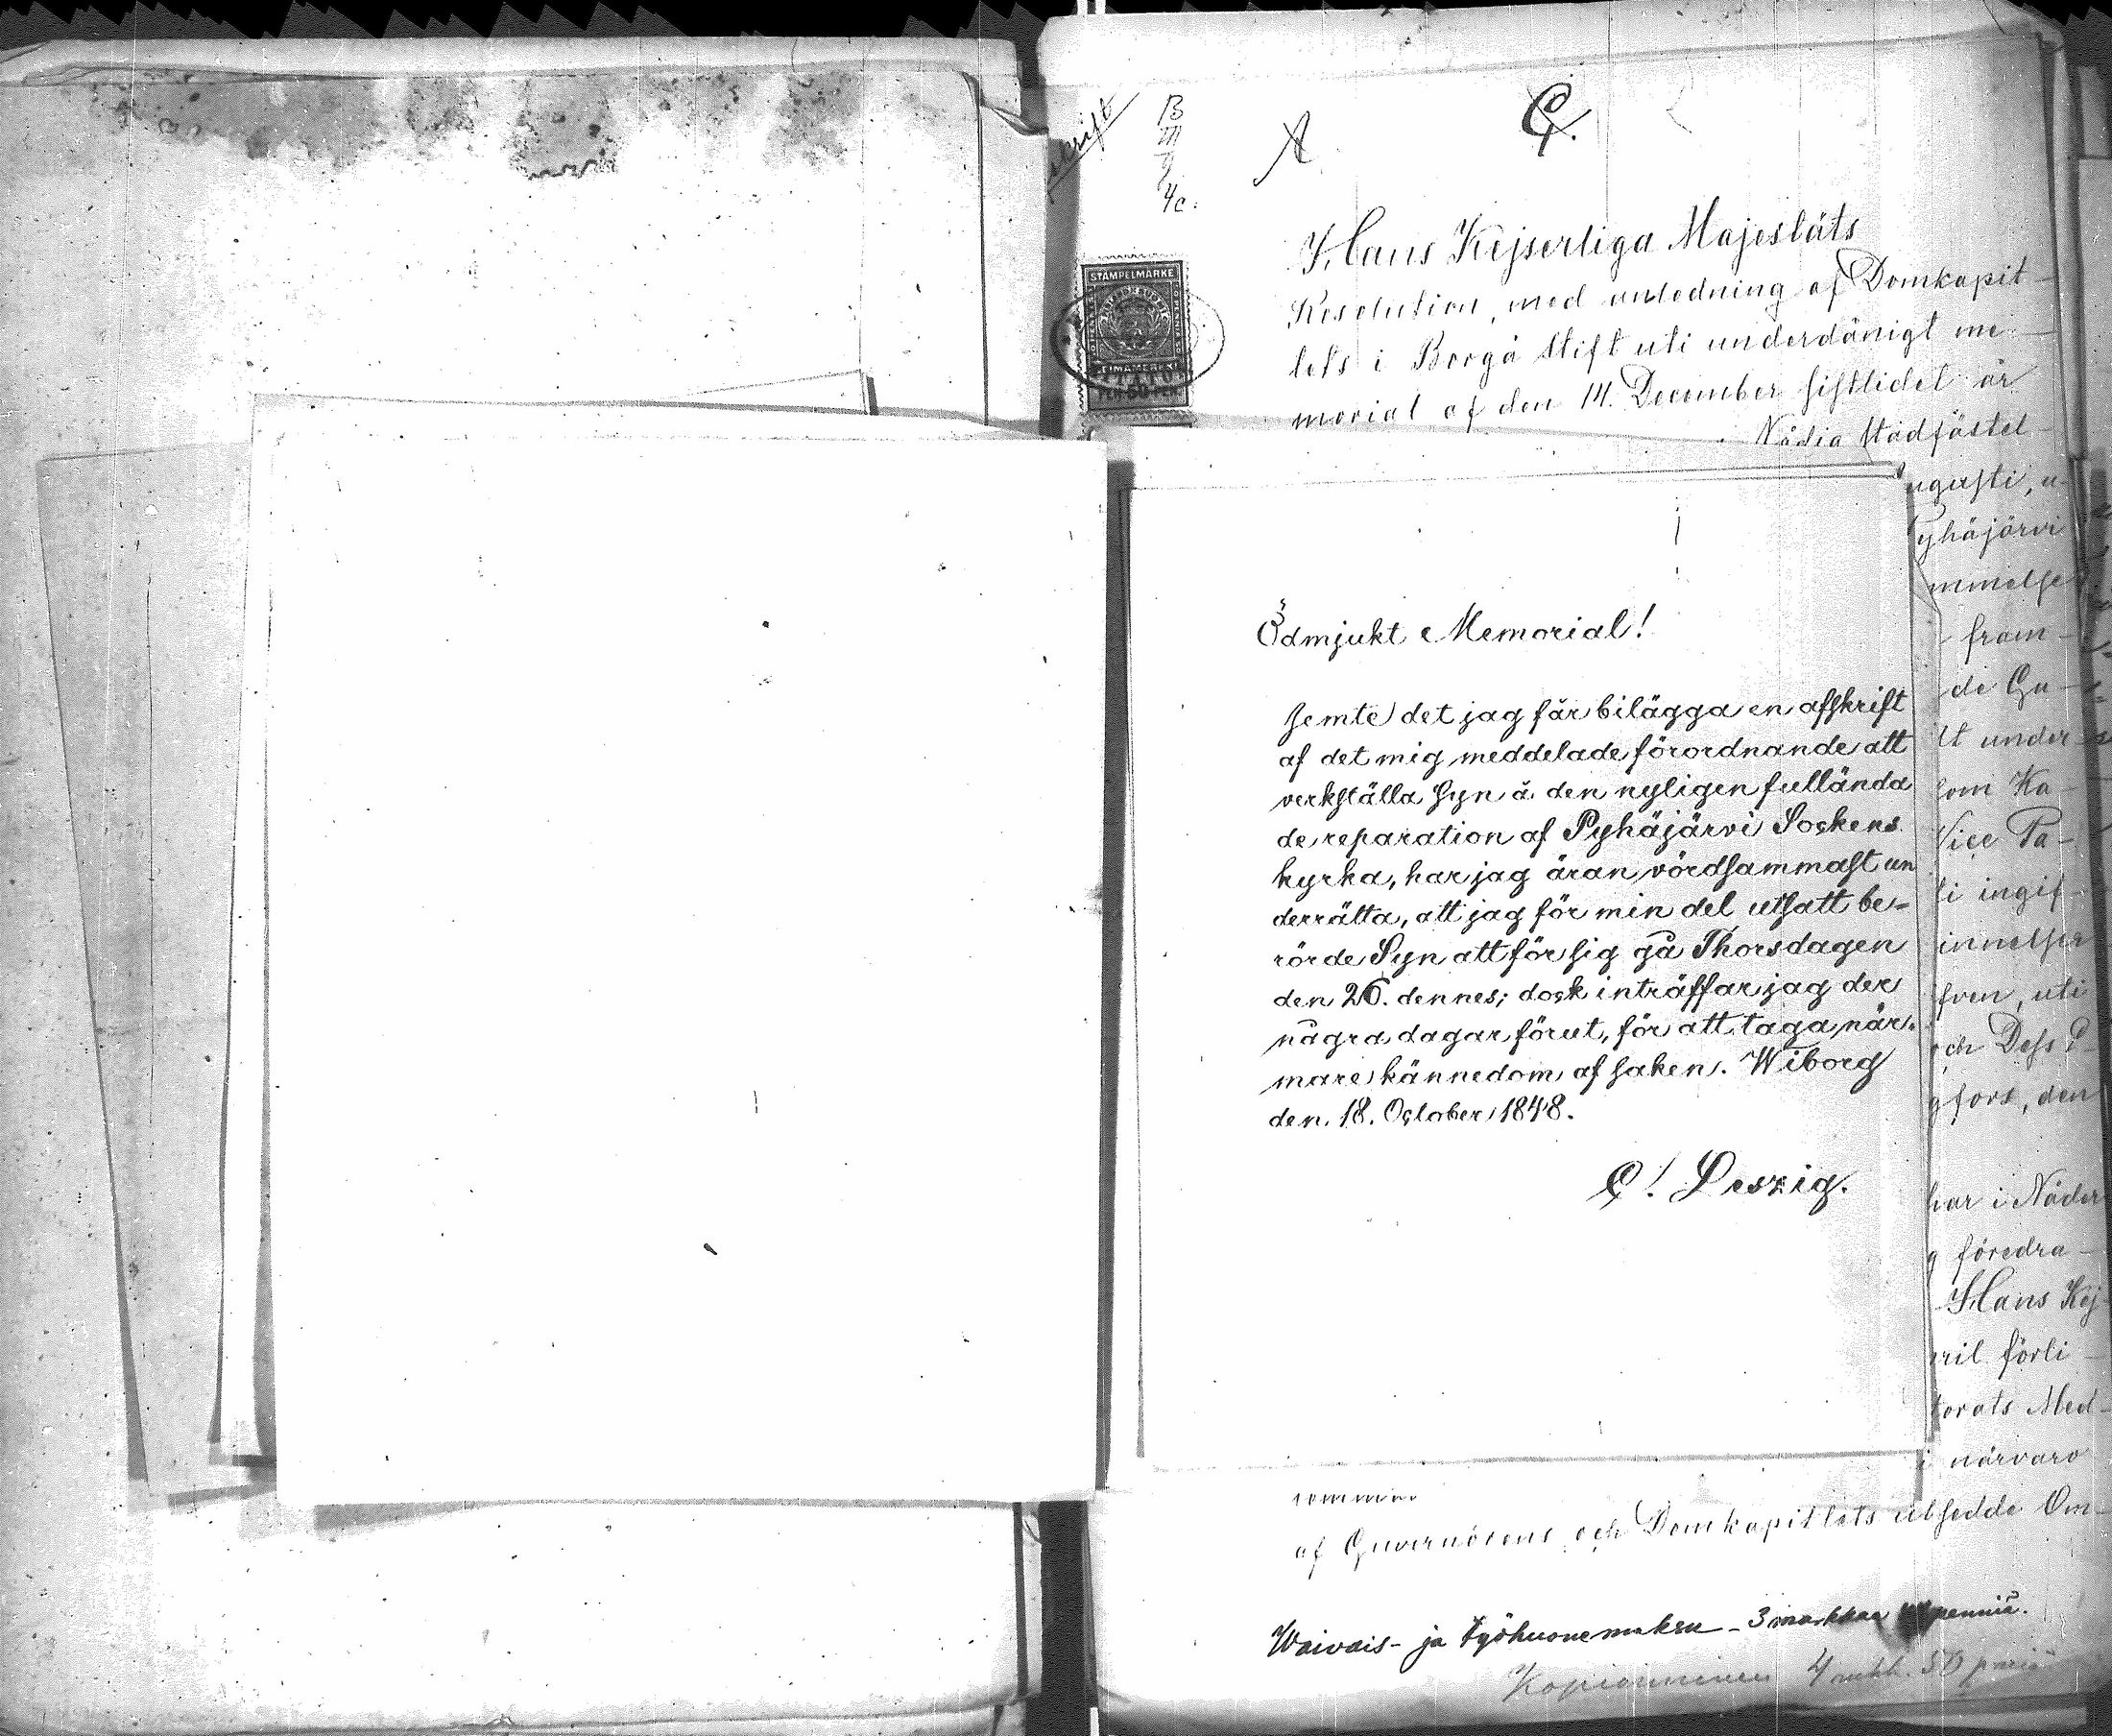 skrift
B
III
g
4c.
A
C.
STÄMPELMÄRKE
Hans Kejserliga Majestäts
Resolution, med anledning af Domkapit-
lets i Borgå Stift uti underdånigt me-
morial af den 14. December sistlidet år
Nådia stadfästel-
ugusti, u-
yhäjärvi
mmelse
fram-
de Gu-
lt under-
som Ka-
Vice Pa-
li ingif-
innelser
fven, uti
och Dess P-
gfors, den
har i Nåder
g föredra-
Hans Kej-
ril förli-
torats Med-
i närvaro
Ödmjukt Memorial!
Jemte det jag får bilägga en afskrift
af det mig meddelade förordnande att
verkställa Syn å den nyligen fullända
de reparation af Pyhäjärvi Sockens
kyrka, har jag äran vördsammast un
derrätta, att jag för min del utsatt be-
rörde Syn att för sig gå Thorsdagen
den 26. dennes; dock inträffar jag der
några dagar förut, för att taga när-
mare kännedom af saken. Wiborg
den 18. October 1848.
C! Leszig.
af Guvernörens och Domkapitlets utsedde Om-
Waivais- ja Työhuonemaksu - 3 markkaa penniä.
Kopioiminen 4 mkk. 50 penniä